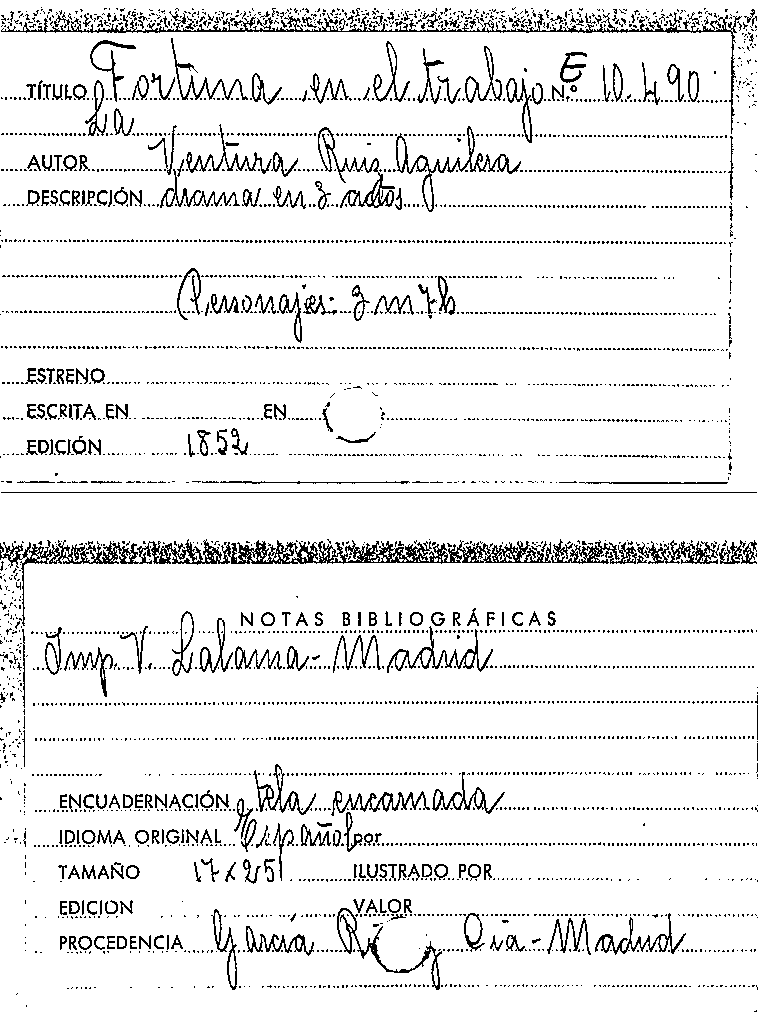 TÍTULO Fortuna en el trabajo N.º E 10.490
La
AUTOR Ventura Ruiz Aguilera
DESCRIPCIÓN drama en 3 actos
Personajes: 3 m 7 h
ESTRENO
ESCRITA EN EN
EDICIÓN 1852
NOTAS BIBLIOGRÁFICAS
Imp. V. Lalama - Madrid
ENCUADERNACIÓN tela encarnada
IDIOMA ORIGINAL Español por
TAMAÑO 17 x 25 ILUSTRADO POR
EDICION VALOR
PROCEDENCIA García y Cía - Madrid